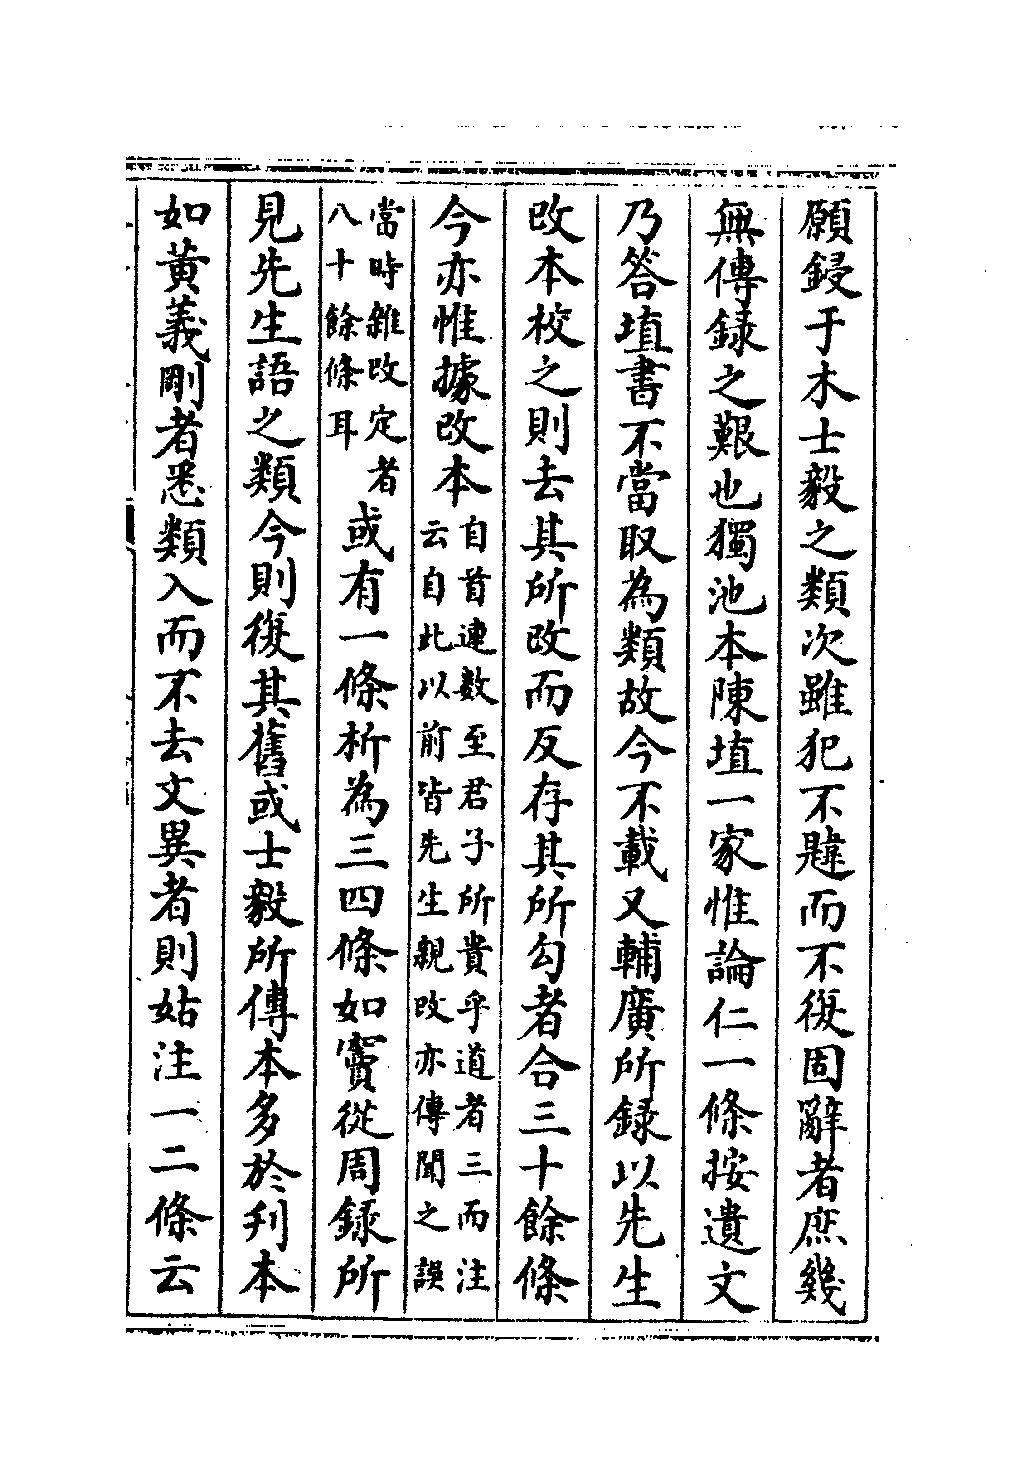 願鋟于木士毅之類次雖犯不韙而不復固辭者庶幾
無傳録之艱也獨池本陳埴一家惟論仁一條按遺文
乃答埴書不當取為類故今不載又輔廣所録以先生
改本校之則去其所改而反存其所勾者合三十餘條
今亦惟據改本自首連數至君子所貴乎道者三而注云自此以前皆先生親改亦傳聞之誤
當時雜改定者八十餘條耳或有一條析為三四條如竇從周録所
見先生語之類今則復其舊或士毅所傳本多於刋本
如黄義剛者悉類入而不去文異者則姑注一二條云